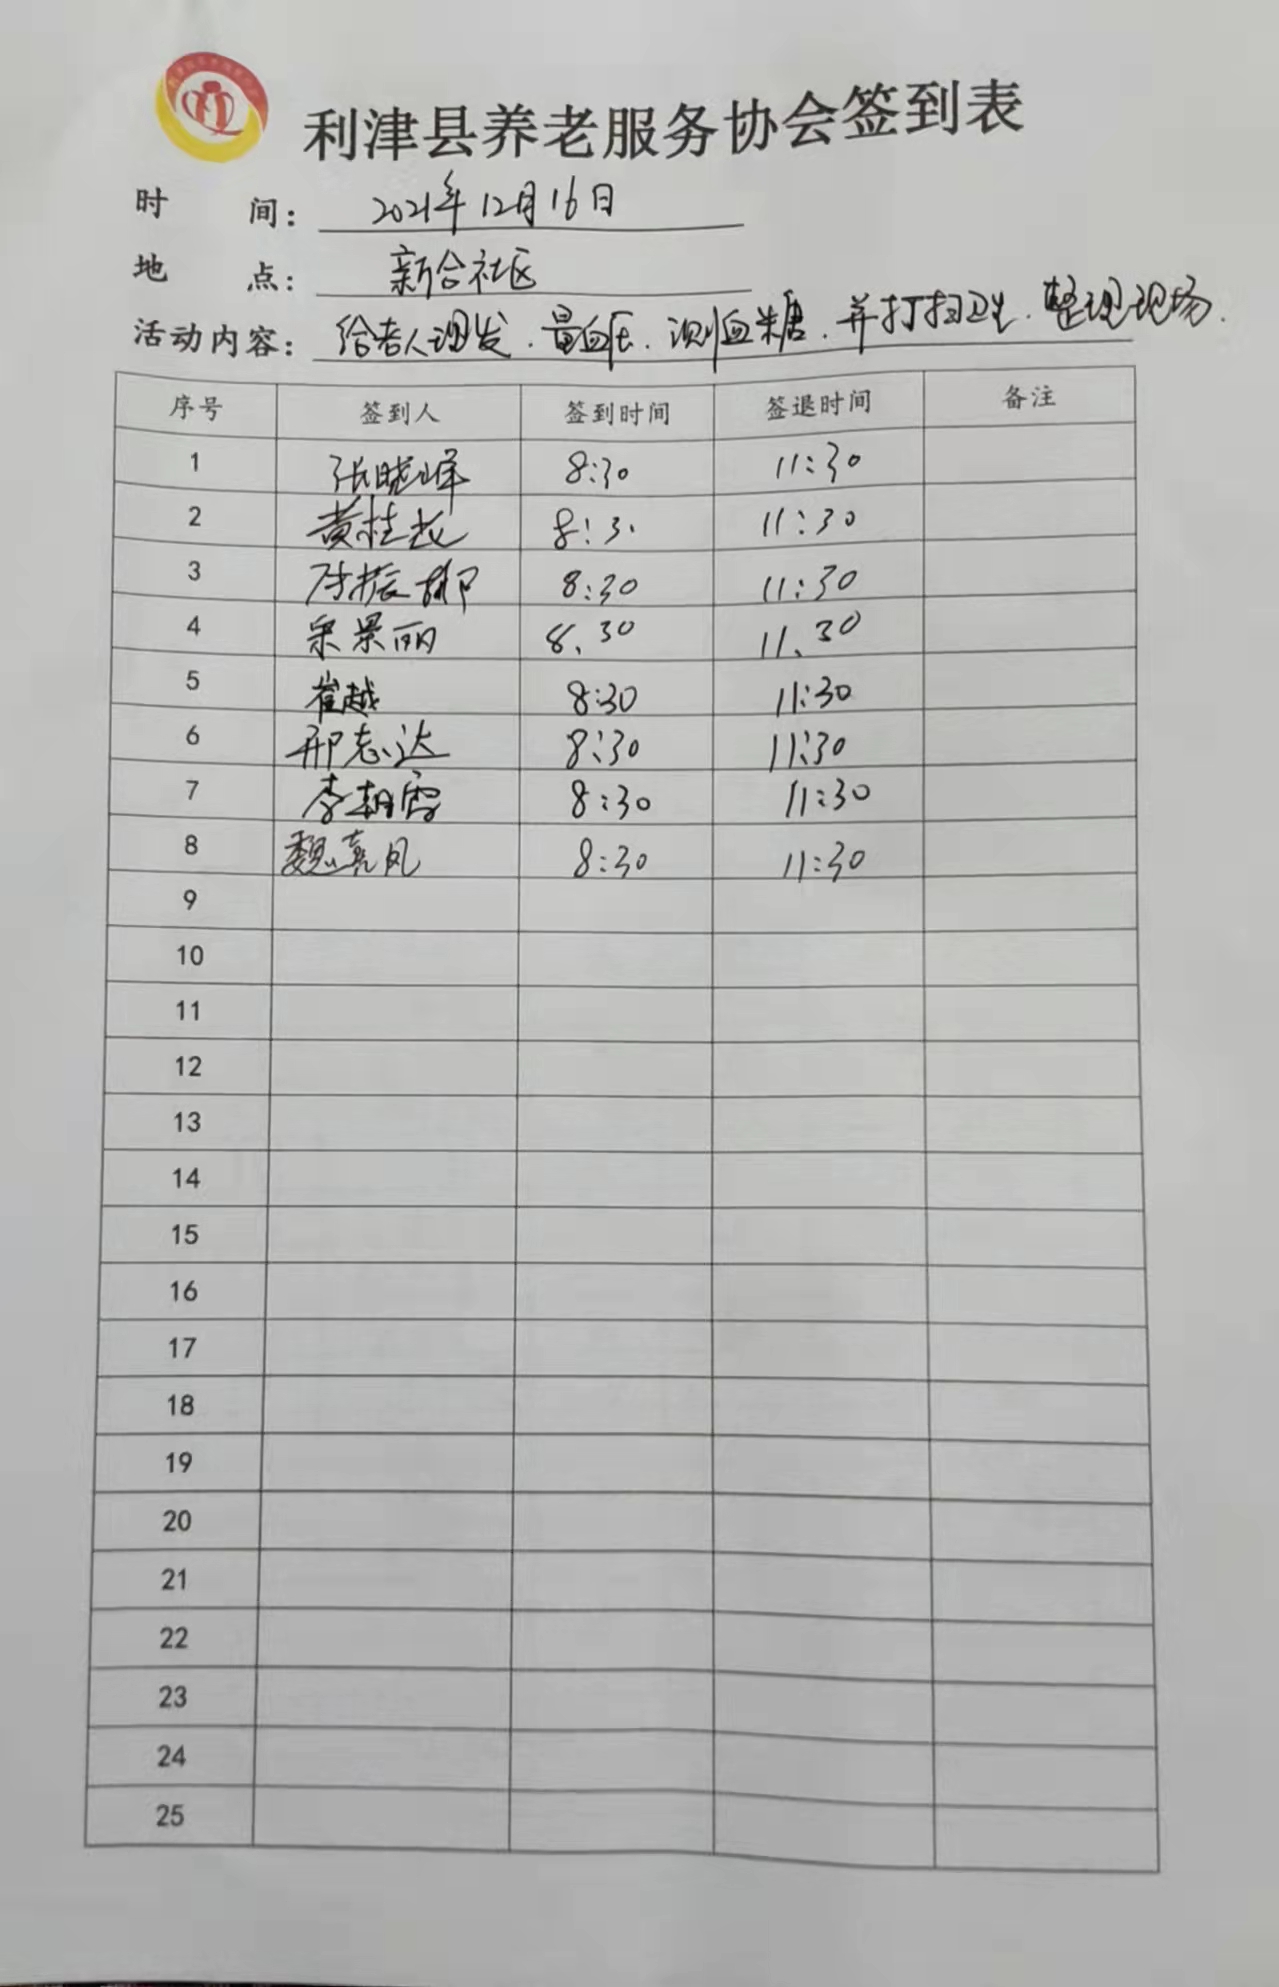 利津县养老服务协会签到表
时 间: 2021年12月16日
地 点: 新合社区
活动内容: 给老人理发.量血压.测血糖.并打扫卫生.整理现场.
序号 签到人 签到时间 签退时间 备注
1 张晓峰 8:30 11:30
2 黄桂 8:30 11:30
3 振 8:30 11:30
4 景丽 8.30 11.30
5 崔越 8:30 11:30
6 邢志达 8:30 11:30
7 李朝霞 8:30 11:30
8 魏喜凤 8:30 11:30
9
10
11
12
13
14
15
16
17
18
19
20
21
22
23
24
25